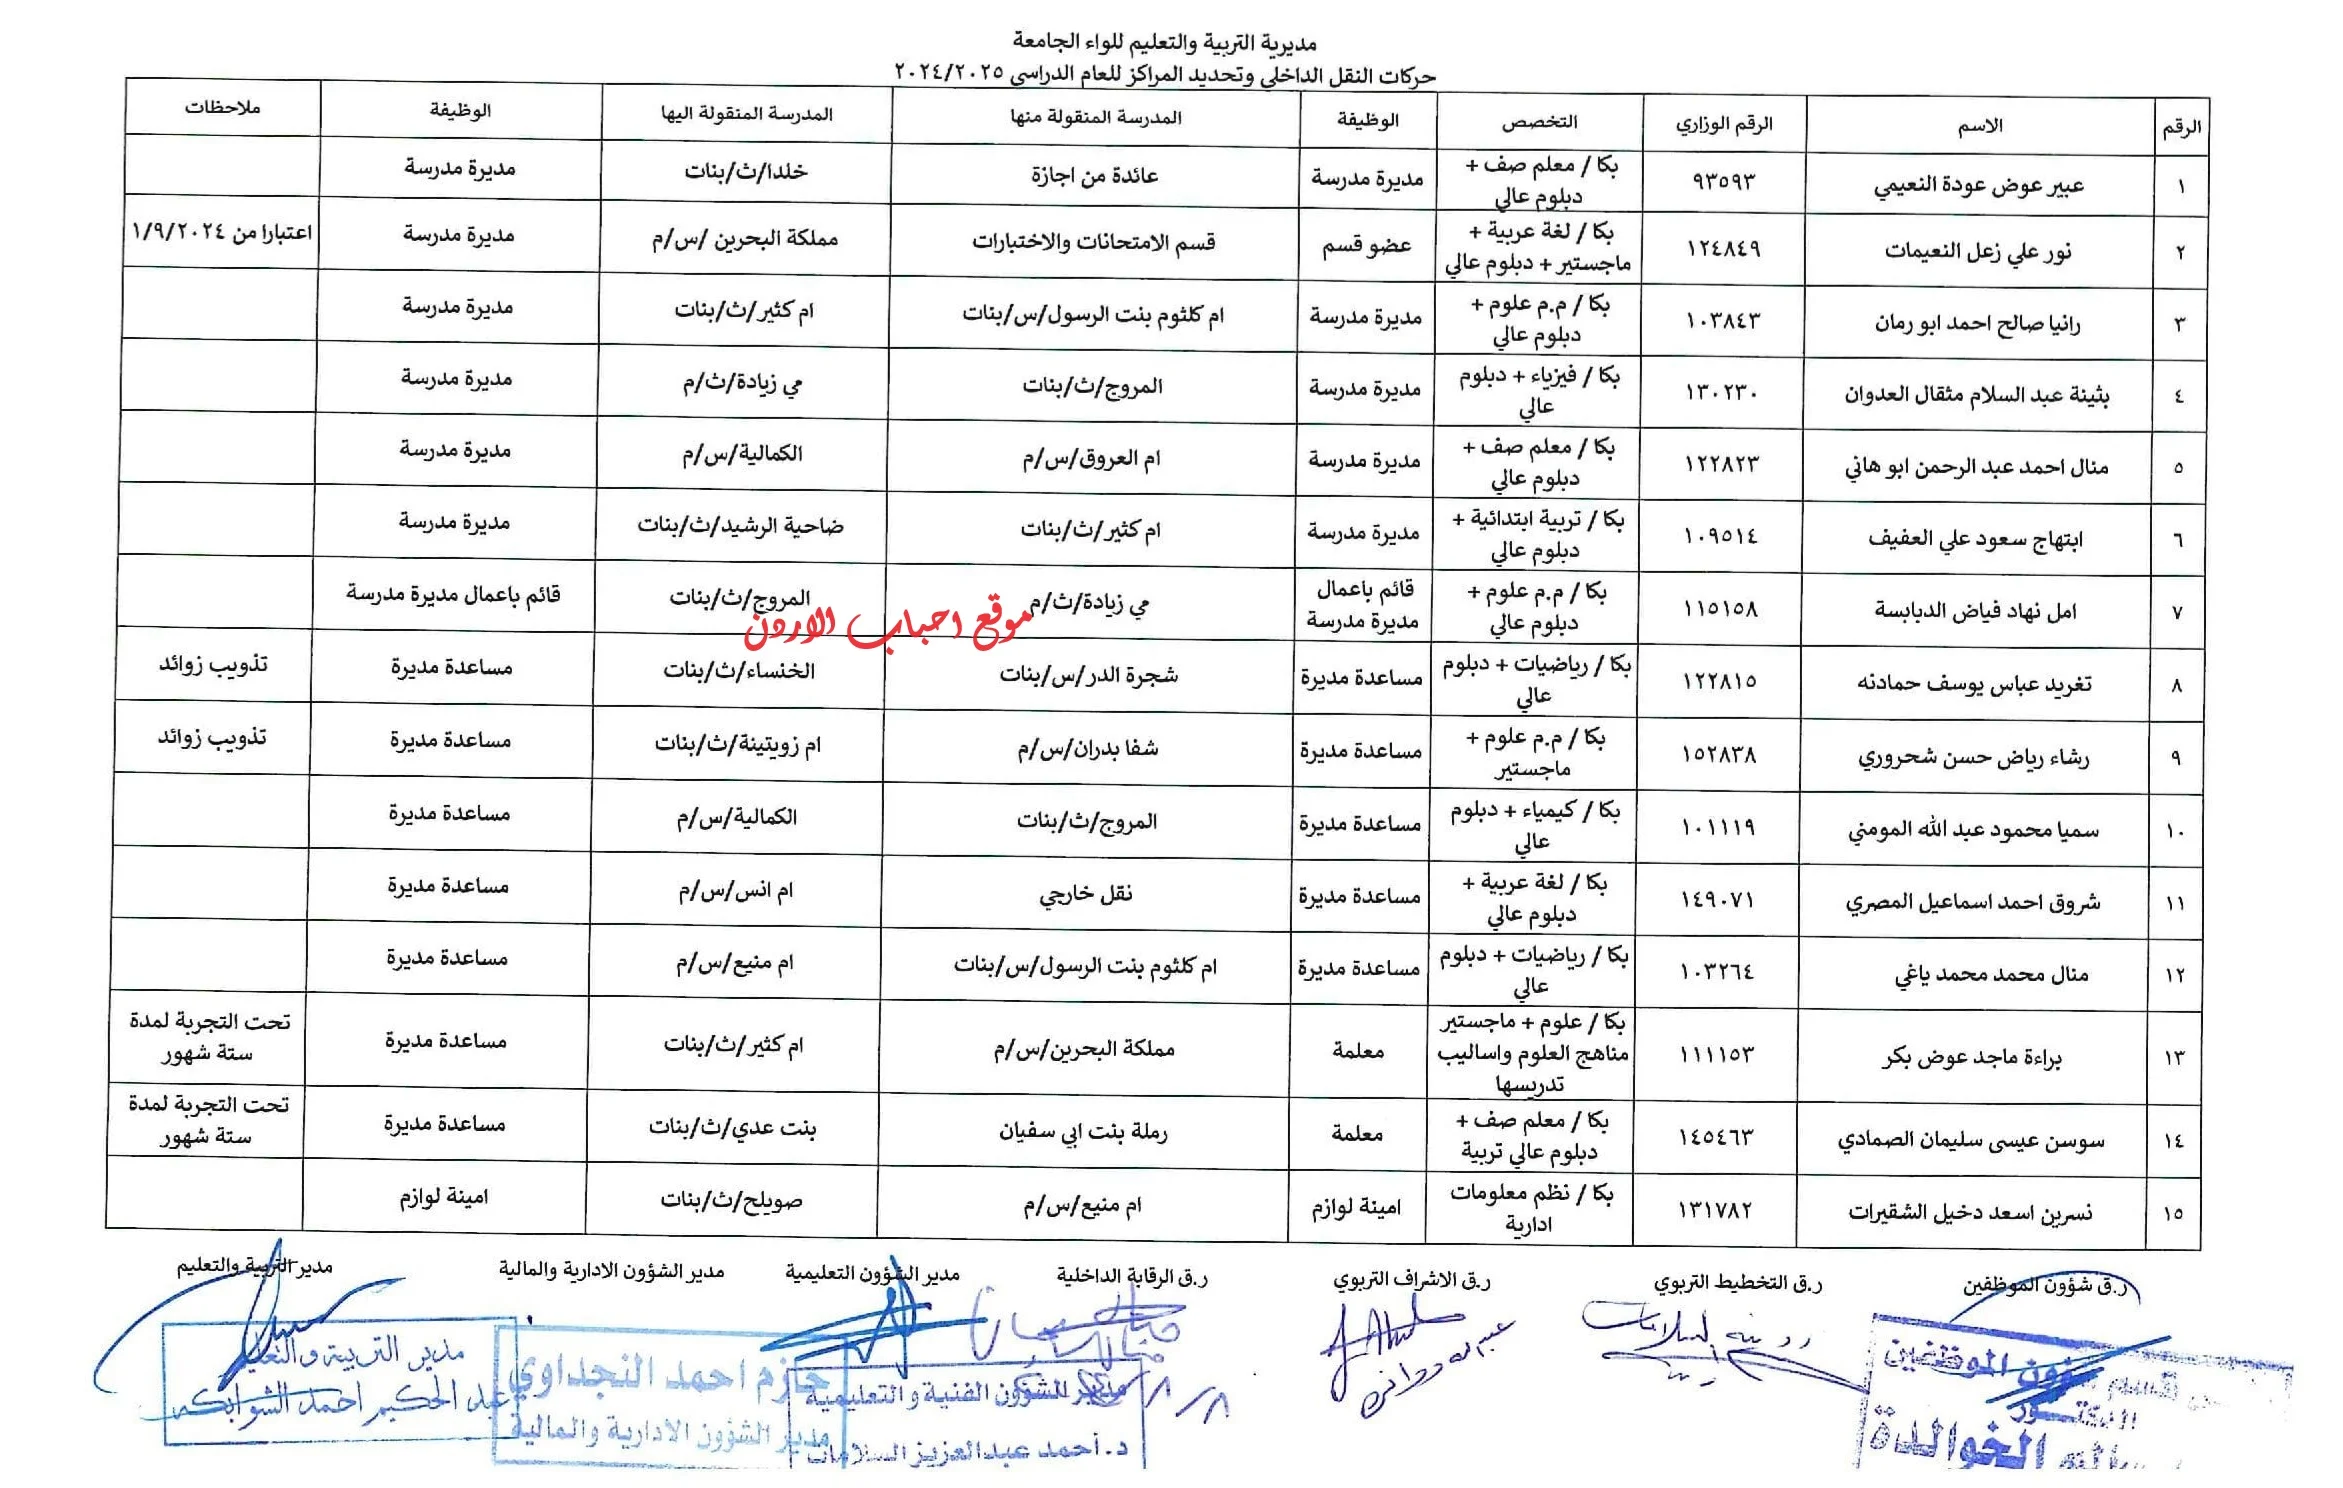 مديرية التربية والتعليم للواء الجامعة
حركات النقل الداخلي وتحديد المراكز للعام الدراسي ٢٠٢٤/٢٠٢٥
الرقم الاسم الرقم الوزاري التخصص الوظيفة المدرسة المنقولة منها المدرسة المنقولة اليها الوظيفة ملاحظات
١ عبير عوض عودة النعيمي ٩٣٥٩٣ بكا / معلم صف + دبلوم عالي مديرة مدرسة عائدة من اجازة خلدا/ث/بنات مديرة مدرسة
٢ نور علي زعل النعيمات ١٢٤٨٤٩ بكا / لغة عربية + ماجستير + دبلوم عالي عضو قسم قسم الامتحانات والاختبارات مملكة البحرين /س/م مديرة مدرسة اعتبارا من ١/٩/٢٠٢٤
٣ رانيا صالح احمد ابو رمان ١٠٣٨٤٣ بكا / م.م علوم + دبلوم عالي مديرة مدرسة ام كلثوم بنت الرسول/س/بنات ام كثير/ث/بنات مديرة مدرسة
٤ بثينة عبد السلام مثقال العدوان ١٣٠٢٣٠ بكا / فيزياء + دبلوم عالي مديرة مدرسة المروج/ث/بنات مي زيادة/ث/م مديرة مدرسة
٥ منال احمد عبد الرحمن ابو هاني ١٢٢٨٢٣ بكا / معلم صف + دبلوم عالي مديرة مدرسة ام العروق/س/م الكمالية/س/م مديرة مدرسة
٦ ابتهاج سعود علي العفيف ١٠٩٥١٤ بكا / تربية ابتدائية + دبلوم عالي مديرة مدرسة ام كثير/ث/بنات ضاحية الرشيد/ث/بنات مديرة مدرسة
٧ امل نهاد فياض الدبابسة ١١٥١٥٨ بكا / م.م علوم + دبلوم عالي قائم باعمال مديرة مدرسة مي زيادة/ث/م المروج/ث/بنات قائم باعمال مديرة مدرسة
موقع احباب الاردن
٨ تغريد عباس يوسف حمادنه ١٢٢٨١٥ بكا / رياضيات + دبلوم عالي مساعدة مديرة شجرة الدر/س/بنات الخنساء/ث/بنات مساعدة مديرة تذويب زوائد
٩ رشاء رياض حسن شحروري ١٥٢٨٣٨ بكا / م.م علوم + ماجستير مساعدة مديرة شفا بدران/س/م ام زويتينة/ث/بنات مساعدة مديرة تذويب زوائد
١٠ سميا محمود عبد الله المومني ١٠١١١٩ بكا / كيمياء + دبلوم عالي مساعدة مديرة المروج/ث/بنات الكمالية/س/م مساعدة مديرة
١١ شروق احمد اسماعيل المصري ١٤٩٠٧١ بكا / لغة عربية + دبلوم عالي مساعدة مديرة نقل خارجي ام انس/س/م مساعدة مديرة
١٢ منال محمد محمد ياغي ١٠٣٢٦٤ بكا / رياضيات + دبلوم عالي مساعدة مديرة ام كلثوم بنت الرسول/س/بنات ام منيع/س/م مساعدة مديرة
١٣ براءة ماجد عوض بكر ١١١١٥٣ بكا / علوم + ماجستير مناهج العلوم واساليب تدريسها معلمة مملكة البحرين/س/م ام كثير/ث/بنات مساعدة مديرة تحت التجربة لمدة ستة شهور
١٤ سوسن عيسى سليمان الصمادي ١٤٥٤٦٣ بكا / معلم صف + دبلوم عالي تربية معلمة رملة بنت ابي سفيان بنت عدي/ث/بنات مساعدة مديرة تحت التجربة لمدة ستة شهور
١٥ نسرين اسعد دخيل الشقيرات ١٣١٧٨٢ بكا / نظم معلومات ادارية امينة لوازم ام منيع/س/م صويلح/ث/بنات امينة لوازم
ر.ق شؤون الموظفين ر.ق التخطيط التربوي ر.ق الاشراف التربوي ر.ق الرقابة الداخلية مدير الشؤون التعليمية مدير الشؤون الادارية والمالية مدير التربية والتعليم
قسم شؤون الموظفين
الدكتور
الخوالدة
مدير الشؤون الفنية والتعليمية
د.أحمد عبدالعزيز السلامات
حازم احمد النجداوي
مدير الشؤون الادارية والمالية
مدير التربية والتعليم
عبد الحكيم احمد الشوابكه